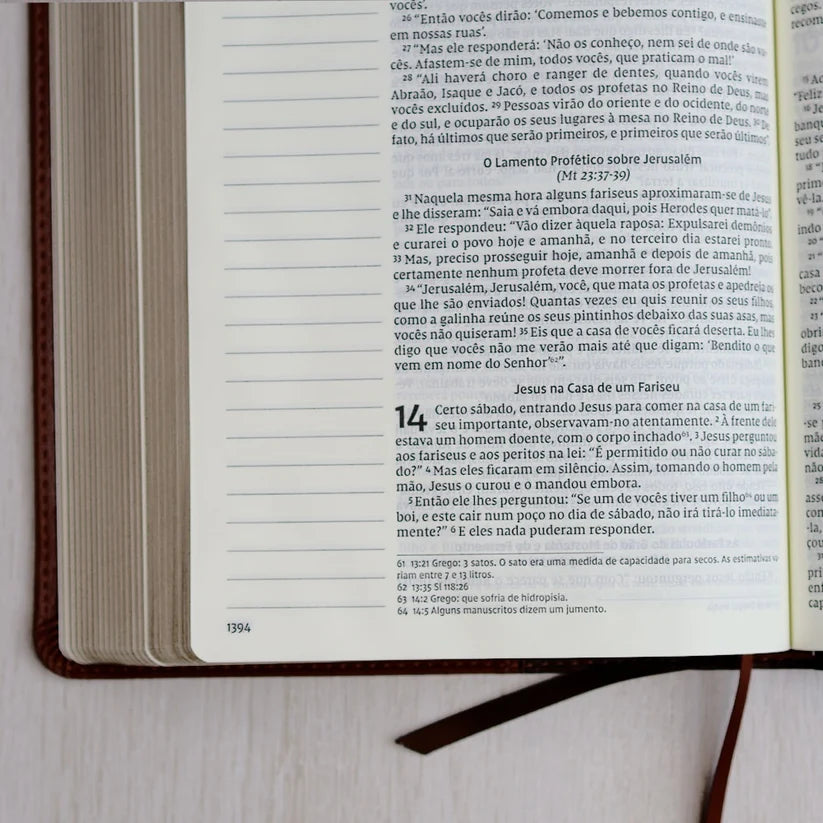 vocês'.
26 “Então vocês dirão: ‘Comemos e bebemos contigo, e ensinaste
em nossas ruas’.
27 “Mas ele responderá: ‘Não os conheço, nem sei de onde são vo-
cês. Afastem-se de mim, todos vocês, que praticam o mal!’
28 “Ali haverá choro e ranger de dentes, quando vocês virem
Abraão, Isaque e Jacó, e todos os profetas no Reino de Deus, mas
vocês excluídos. 29 Pessoas virão do oriente e do ocidente, do norte
e do sul, e ocuparão os seus lugares à mesa no Reino de Deus. 30 De
fato, há últimos que serão primeiros, e primeiros que serão últimos”.
O Lamento Profético sobre Jerusalém
(Mt 23:37-39)
31 Naquela mesma hora alguns fariseus aproximaram-se de Jesus
e lhe disseram: “Saia e vá embora daqui, pois Herodes quer matá-lo”.
32 Ele respondeu: “Vão dizer àquela raposa: Expulsarei demônios
e curarei o povo hoje e amanhã, e no terceiro dia estarei pronto.
33 Mas, preciso prosseguir hoje, amanhã e depois de amanhã, pois
certamente nenhum profeta deve morrer fora de Jerusalém!
34 “Jerusalém, Jerusalém, você, que mata os profetas e apedreja os
que lhe são enviados! Quantas vezes eu quis reunir os seus filhos,
como a galinha reúne os seus pintinhos debaixo das suas asas, mas
vocês não quiseram! 35 Eis que a casa de vocês ficará deserta. Eu lhes
digo que vocês não me verão mais até que digam: ‘Bendito o que
vem em nome do Senhor’62”.
Jesus na Casa de um Fariseu
14 Certo sábado, entrando Jesus para comer na casa de um fari-
seu importante, observavam-no atentamente. 2 À frente dele
estava um homem doente, com o corpo inchado63. 3 Jesus perguntou
aos fariseus e aos peritos na lei: “É permitido ou não curar no sába-
do?” 4 Mas eles ficaram em silêncio. Assim, tomando o homem pela
mão, Jesus o curou e o mandou embora.
5 Então ele lhes perguntou: “Se um de vocês tiver um filho64 ou um
boi, e este cair num poço no dia de sábado, não irá tirá-lo imediata-
mente?” 6 E eles nada puderam responder.
61 13:21 Grego: 3 satos. O sato era uma medida de capacidade para secos. As estimativas va-
riam entre 7 e 13 litros.
62 13:35 Sl 118:26
63 14:2 Grego: que sofria de hidropisia.
64 14:5 Alguns manuscritos dizem um jumento.
1394